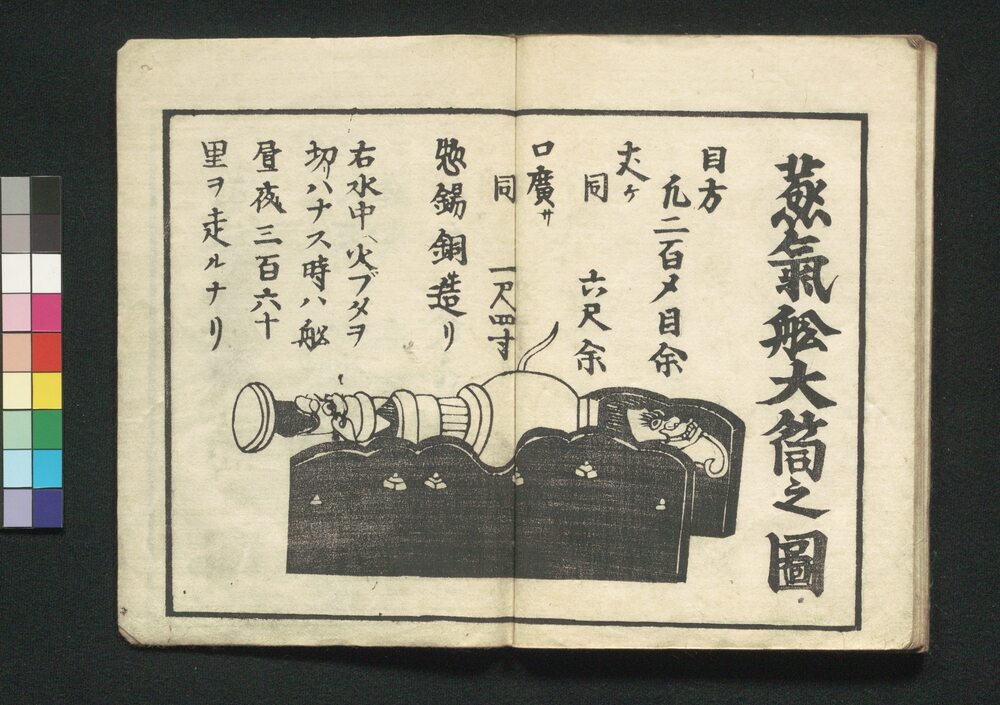 蒸氣舩大筒之圖
目方
凢二百〆目余
丈ケ
同 六尺余
口廣サ
同 一尺四寸
惣錫銅造リ
右水中ヘ火ブタヲ
切リハナス時ハ舩
昼夜三百六十
里ヲ走ルナリ